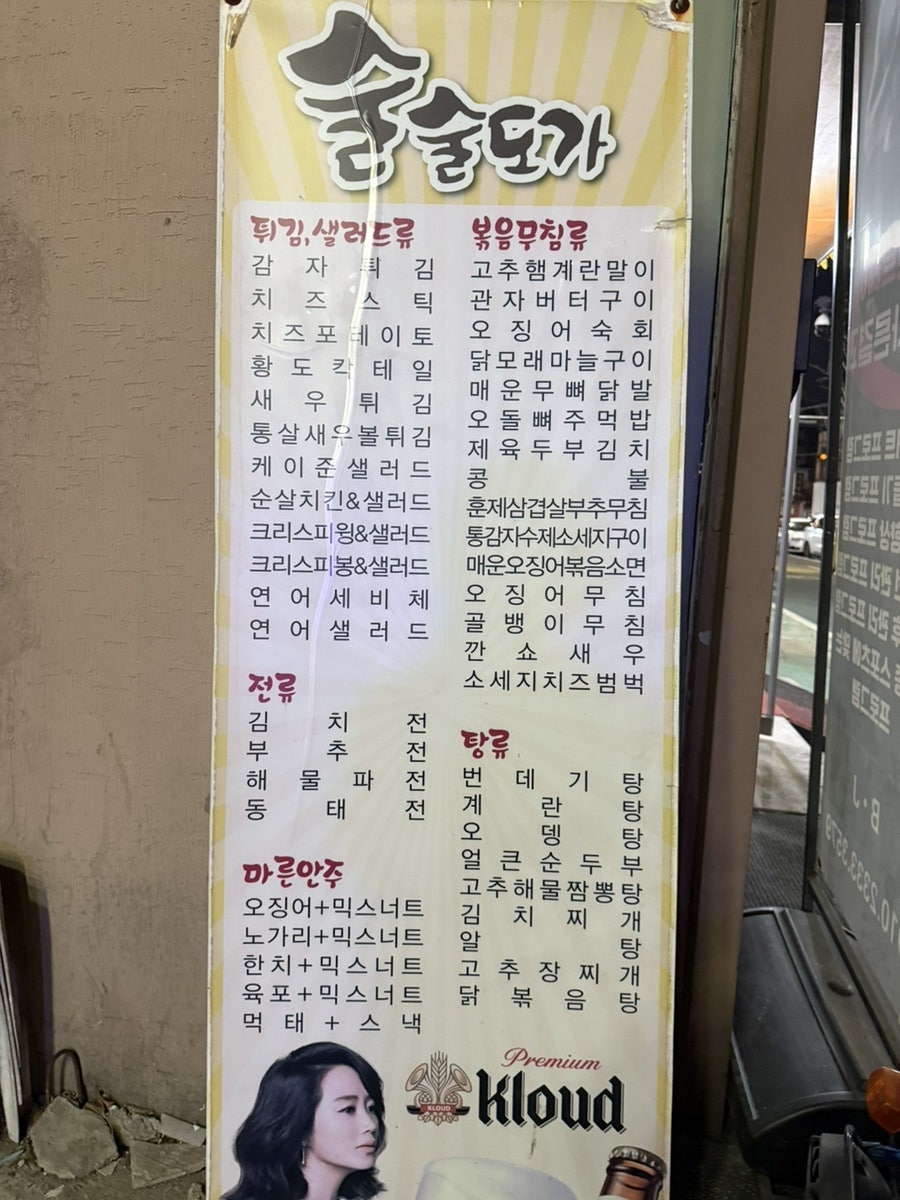 술술도가
튀김,샐러드류
감자튀김
치즈스틱
치즈포테이토
황도칵테일
새우튀김
통살새우볼튀김
케이준샐러드
순살치킨&샐러드
크리스피윙&샐러드
크리스피봉&샐러드
연어세비체
연어샐러드
전류
김치전
부추전
해물파전
동태전
마른안주
오징어+믹스너트
노가리+믹스너트
한치+믹스너트
육포+믹스너트
먹태+스낵
볶음무침류
고추햄계란말이
관자버터구이
오징어숙회
닭모래마늘구이
매운무뼈닭발
오돌뼈주먹밥
제육두부김치
콩불
훈제삼겹살부추무침
통감자수제소세지구이
매운오징어볶음소면
오징어무침
골뱅이무침
깐쇼새우
소세지치즈범벅
탕류
번데기탕
계란탕
오뎅탕
얼큰순두부
고추해물짬뽕탕
김치찌개
알탕
고추장찌개
닭볶음탕
Premium
Kloud
KLOUD
프로그램
프로그램
프로그램
관리 프로그램
관리 프로그램
프로그램
B·J
010.2333.3579